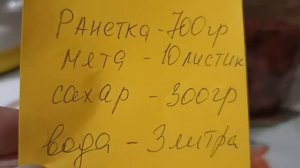 Ранетка - 700гр
мята - 10 листик
сахар - 300гр
вода - 3 литра